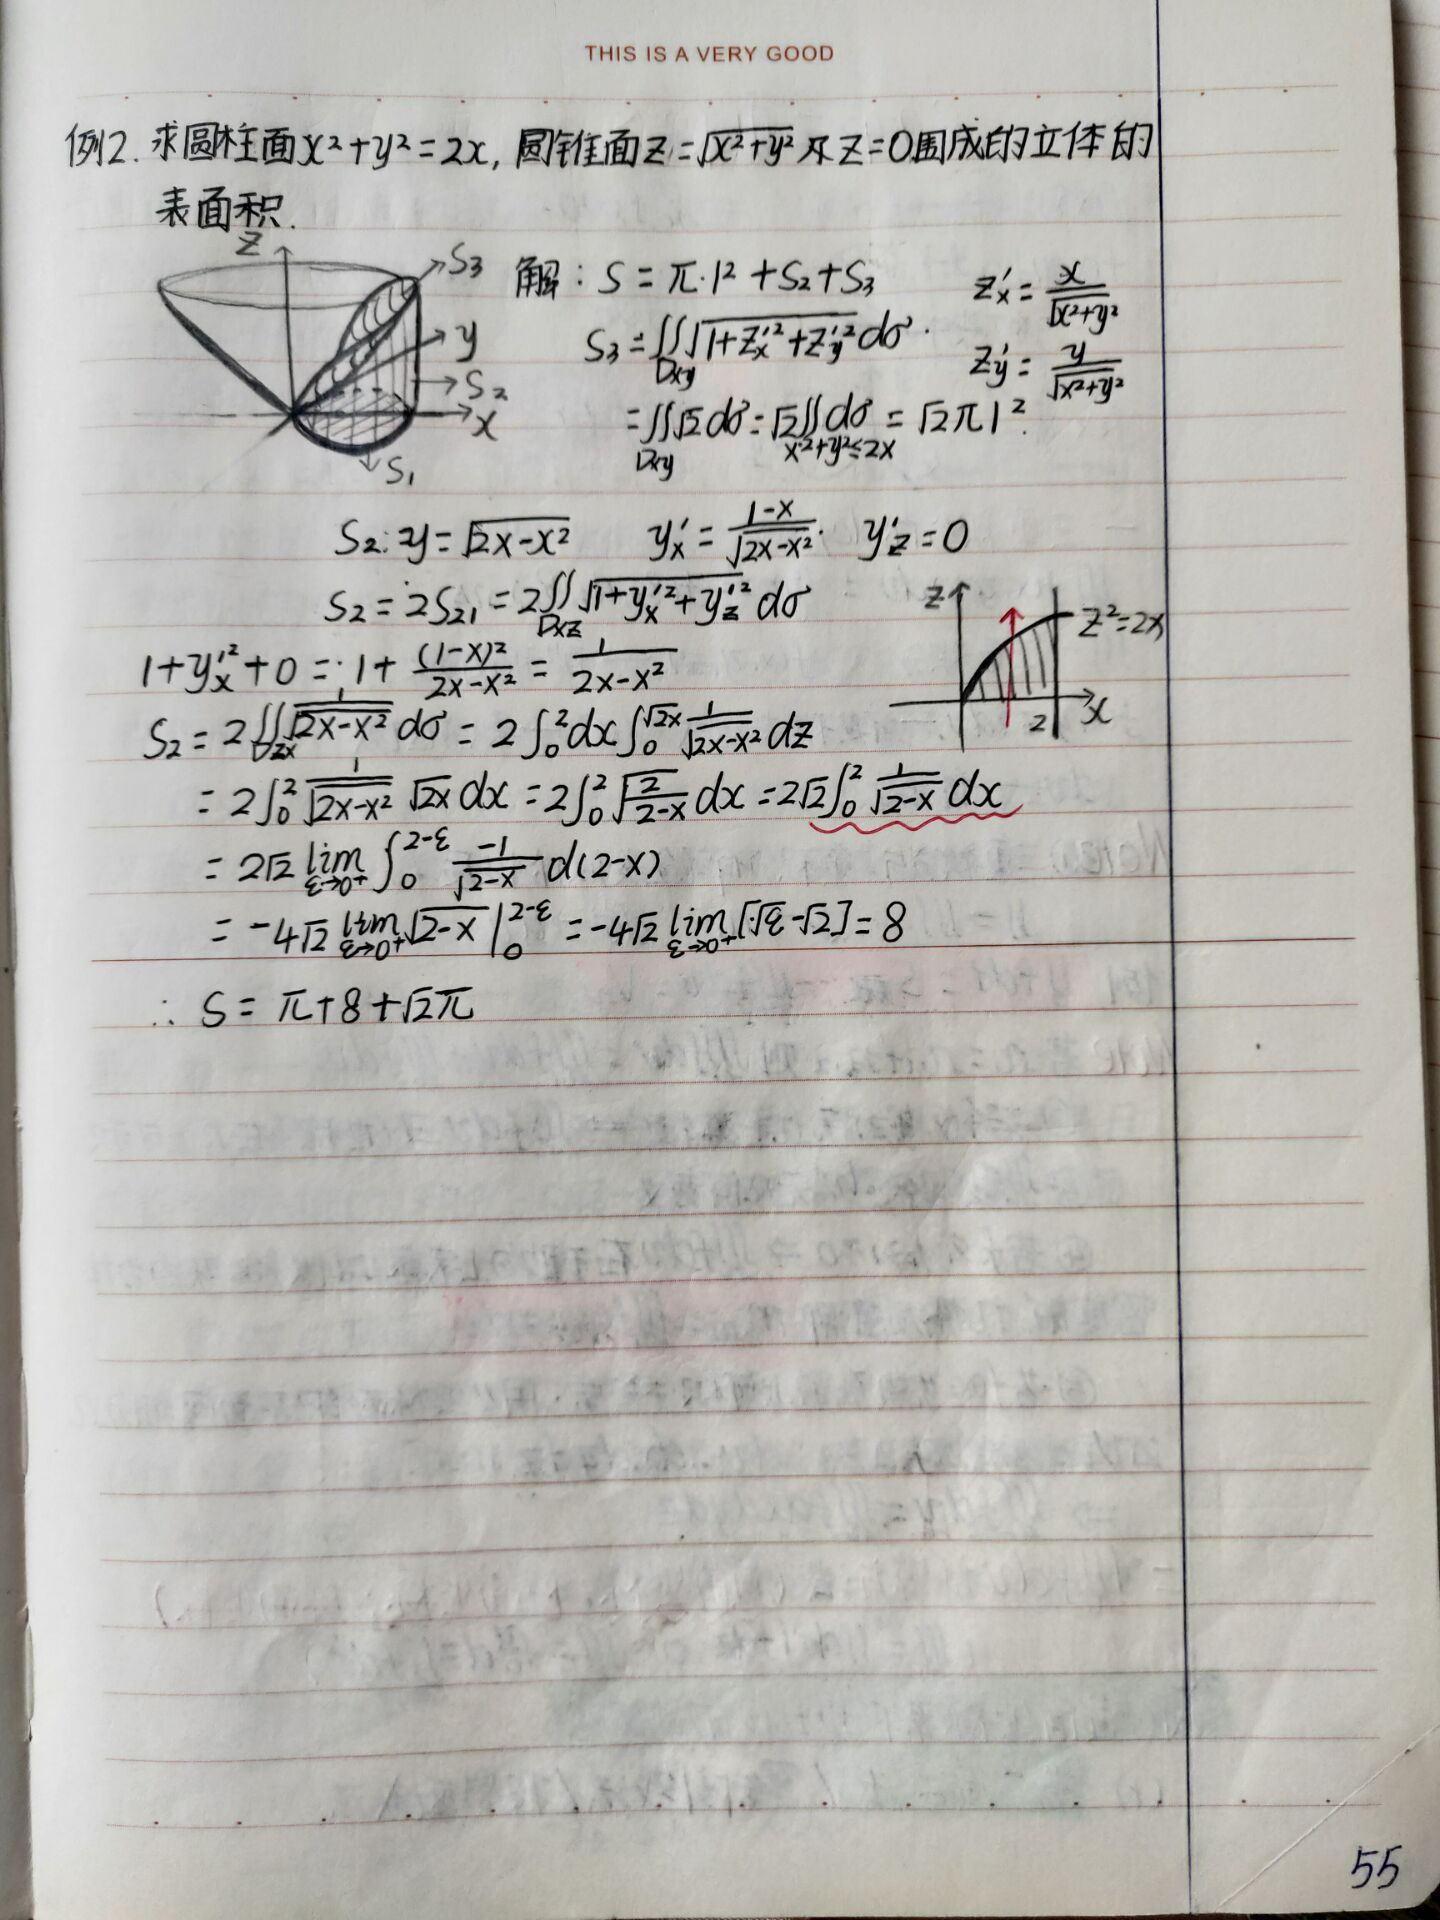 THIS IS A VERY GOOD
例2. 求圆柱面x²+y²=2x, 圆锥面z=√(x²+y²)及z=0围成的立体的
表面积.
z
S3
y
S2
x
S1
解: S = π·1² + S2 + S3
z'x = x/√(x²+y²)
S3 = ∬Dxy √(1+z'x²+z'y²) dσ.
z'y = y/√(x²+y²)
= ∬Dxy √2 dσ = √2 ∬x²+y²≤2x dσ = √2π1².
S2: y = √(2x-x²) y'x = (1-x)/√(2x-x²). y'z = 0
S2 = 2S21 = 2∬Dxz √(1+y'x²+y'z²) dσ
z
z²=2x
2
x
1+y'x²+0 = 1+(1-x)²/(2x-x²) = 1/(2x-x²)
S2 = 2∬Dzx 1/√(2x-x²) dσ = 2∫₀² dx ∫₀^√2x 1/√(2x-x²) dz
= 2∫₀² 1/√(2x-x²) √2x dx = 2∫₀² √(2/(2-x)) dx = 2√2 ∫₀² 1/√(2-x) dx
= 2√2 lim ε→0⁺ ∫₀^2-ε -1/√(2-x) d(2-x)
= -4√2 lim ε→0⁺ √(2-x) |₀^2-ε = -4√2 lim ε→0⁺ [√ε-√2] = 8
∴ S = π+8+√2π
55